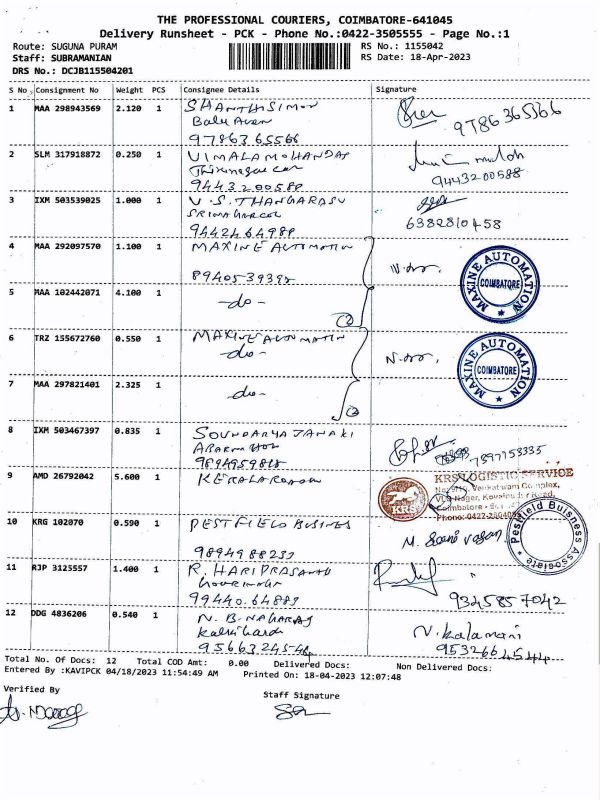 THE PROFESSIONAL COURIERS, COIMBATORE-641045
Delivery Runsheet - PCK - Phone No.:0422-3505555 - Page No.:1
Route: SUGUNA PURAM RS No.: 1155042
Staff: SUBRAMANIAN RS Date: 18-Apr-2023
DRS No.: DCJB115504201
S No Consignment No Weight PCS Consignee Details Signature
1 MAA 298943569 2.120 1 SHANTHISIMON
9786365566 9786365566
2 SLM 317918872 0.250 1 VIMALAMOHANDAS
9443200588 9443200588
3 IXM 503539025 1.000 1 V.S. THANGARASU
9442464988 6382810458
4 MAA 292097570 1.100 1 MAXINE AUTOMATION
MAXINE AUTOMATION
COIMBATORE
5 MAA 102442071 4.100 1 -do-
6 TRZ 155672760 0.550 1 MAXINE AUTOMATION
-do-
MAXINE AUTOMATION
COIMBATORE
7 MAA 297821401 2.325 1 -do-
8 IXM 503467397 0.835 1 SOUNDARYA JANAKI
9 AMD 26792042 5.600 1
KRS LOGISTIC SERVICE
KRS
10 KRG 102070 0.590 1 PESTFIELD BUSINES
Pestfield Buisness Associate
11 RJP 3125557 1.400 1 R. HARIPRASANTH
9345857042
12 DDG 4836206 0.540 1 N.B. NAGARAJ
N. Kalamani
Total No. Of Docs: 12 Total COD Amt: 0.00 Delivered Docs: Non Delivered Docs:
Entered By :KAVIPCK 04/18/2023 11:54:49 AM Printed On: 18-04-2023 12:07:48
Verified By Staff Signature